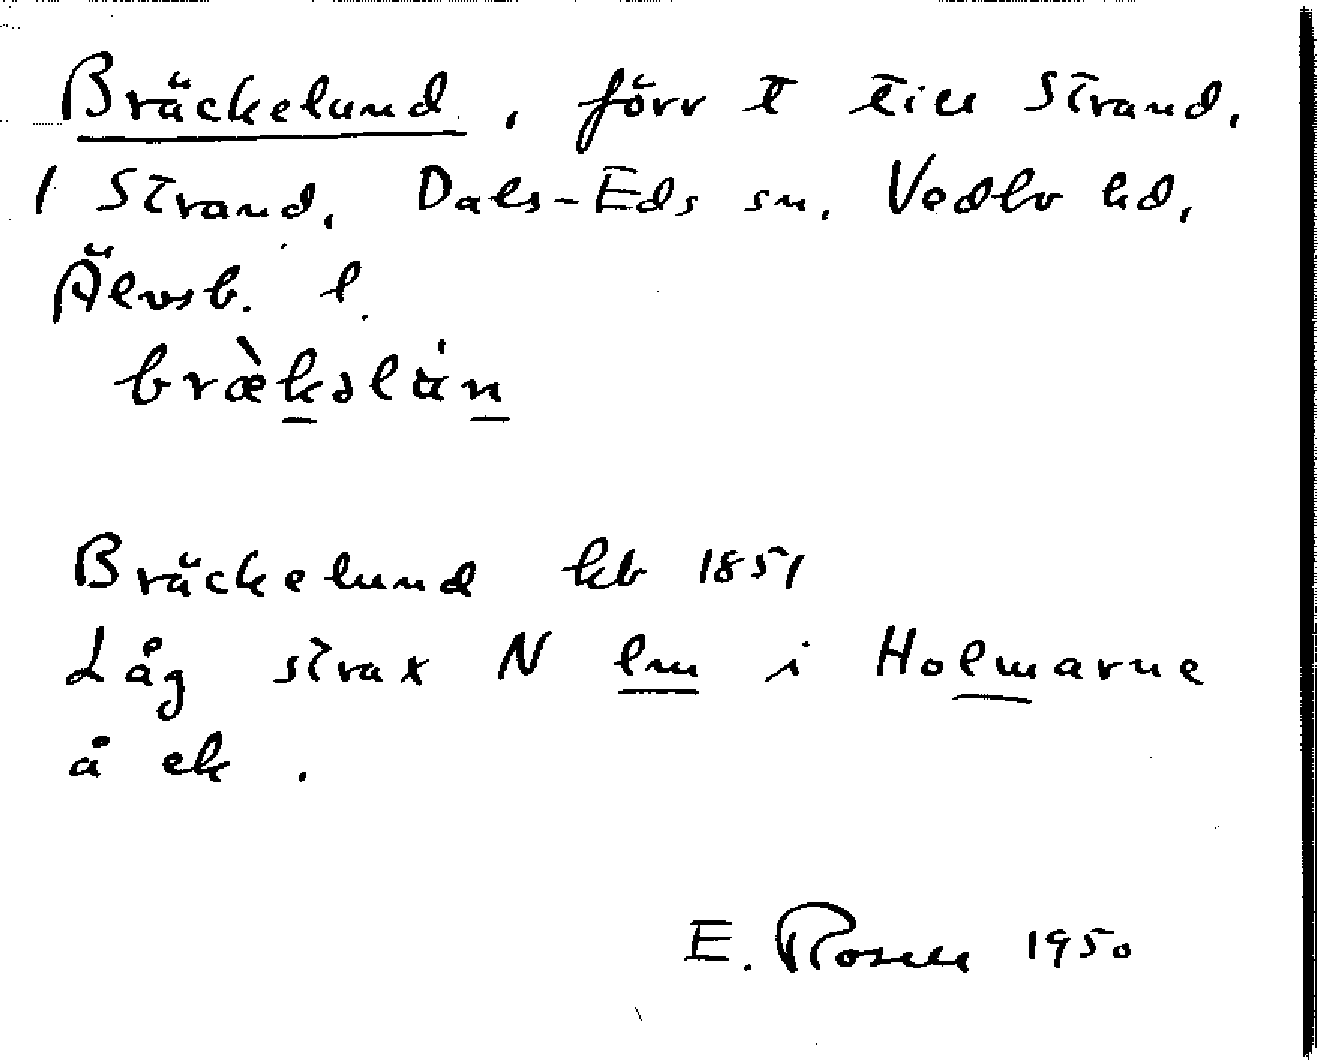 Bräckelund, förr t till Strand,
1 Strand, Dals-Eds sn, Vedbo hd,
Älvsb. l.
bræ̀kəlun
Bräckelund kb 1851
Låg strax N lm i Holmarne
å ek.
E. Rosell 1950